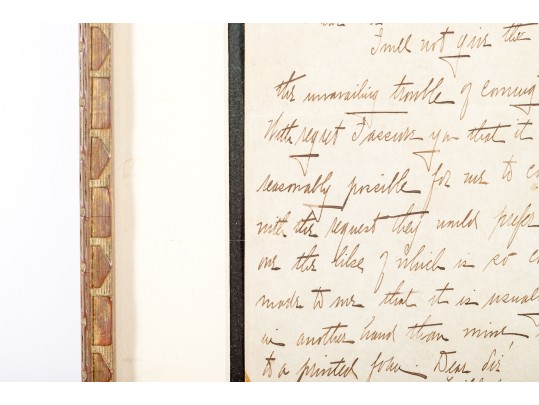 I will not give the
the unavailing trouble of coming
With regret I assure you that it
reasonably possible for me to
with the request they would prefer
one the like of which is so
made to me that it is usual
in another hand than mine,
to a printed form. Dear Sir,